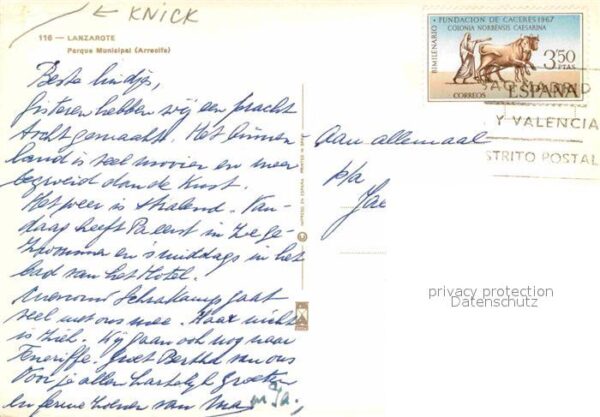 ← KNICK
116 — LANZAROTE
Parque Municipal (Arrecife)
Beste lindjes,
Gisteren hebben wij een pracht
tocht gemaakt. Het binnen
land is veel mooier en meer
begroeid dan de kust.
Het weer is stralend. Van-
daag heeft in zee ge-
zwommen en 's middags in het
bad van het Hotel.
Mevrouw gaat
veel met ons mee. Haar nicht
is ziek. Wij gaan ook nog naar
Teneriffe. Groet Bertha van ons
Voor je allen hartelijk groeten
en ferme zoenen van Ma en Pa.
IMPRESO EN ESPAÑA
PRINTED IN SPAIN
BIMILENARIO
FUNDACION DE CACERES 1967
COLONIA NORBENSIS CAESARINA
3'50
PTAS
CORREOS
ESPAÑA
Y VALENCIA
STRITO POSTAL
Aan allemaal
p/a
privacy protection
Datenschutz